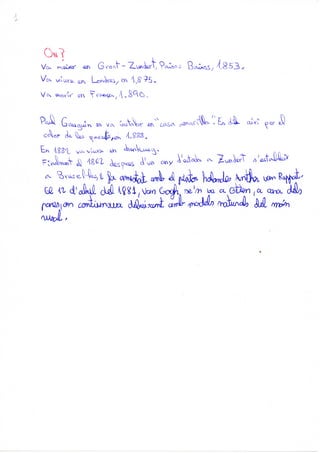 On?
Va naixer en Groot-Zundert, Països Baixos, 1.853.
Va viure en Londres, en 1.875.
Va morir en França, 1.890.
Paul Gauguin es va instal·lar en "casa amarilla". En dia així per el
color de les 1.888.
En 1882 va viure en
Finalment el 1862 despres d'un any d'estada a Zundert s'establir
a Brussel·les, i fa amistat amb el pintor holandès Anthon van Rappat.
El 12 d'abril del 1881, Van Gogh, se'n va a Etten, a casa dels
pares, on continuava dibuixant amb models naturals del món
rural.